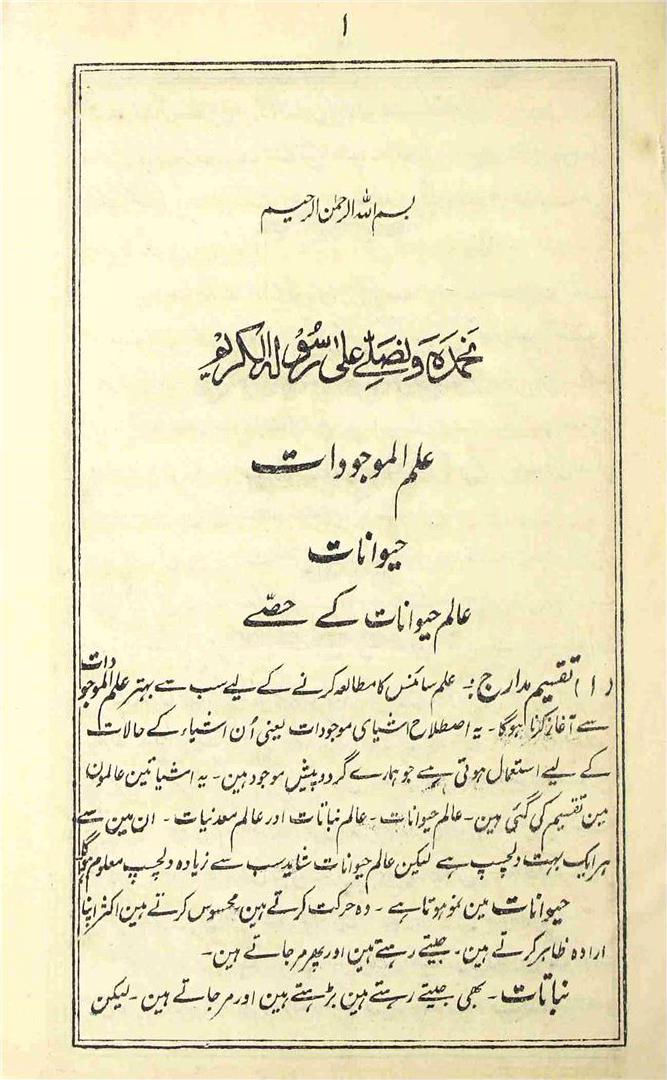 ۱
بسم اللہ الرحمٰن الرحیم
نَحْمَدُہٗ وَنُصَلِّے عَلٰی رَسُوْلِہِ الْکَرِیْمِ
علم الموجودات
حیوانات
عالم حیوانات کے حصّے
(۱) تقسیم مدارج :۔ علم سائنس کا مطالعہ کرنے کے لیے سب سے بہتر علم الموجودات
سے آغاز کرنا ہوگا۔ یہ اصطلاح اشیای موجودات یعنی اُن اشیاء کے حالات
کے لیے استعمال ہوتی ہے جو ہمارے گرد و پیش موجود ہین۔ یہ اشیا تین عالمون
مین تقسیم کی گئی ہین۔ عالم حیوانات۔ عالم نباتات اور عالم معدنیات۔ ان مین سے
ہر ایک بہت دلچسپ ہے لیکن عالم حیوانات شاید سب سے زیادہ دلچسپ معلوم ہوگا
حیوانات مین نمو ہوتا ہے۔ وہ حرکت کرتے ہین، محسوس کرتے ہین اکثر اپنا
ارادہ ظاہر کرتے ہین۔ جیتے رہتے ہین اور پھر مر جاتے ہین۔
نباتات۔ بھی جیتے رہتے ہین بڑہتے ہین اور مر جاتے ہین۔ لیکن